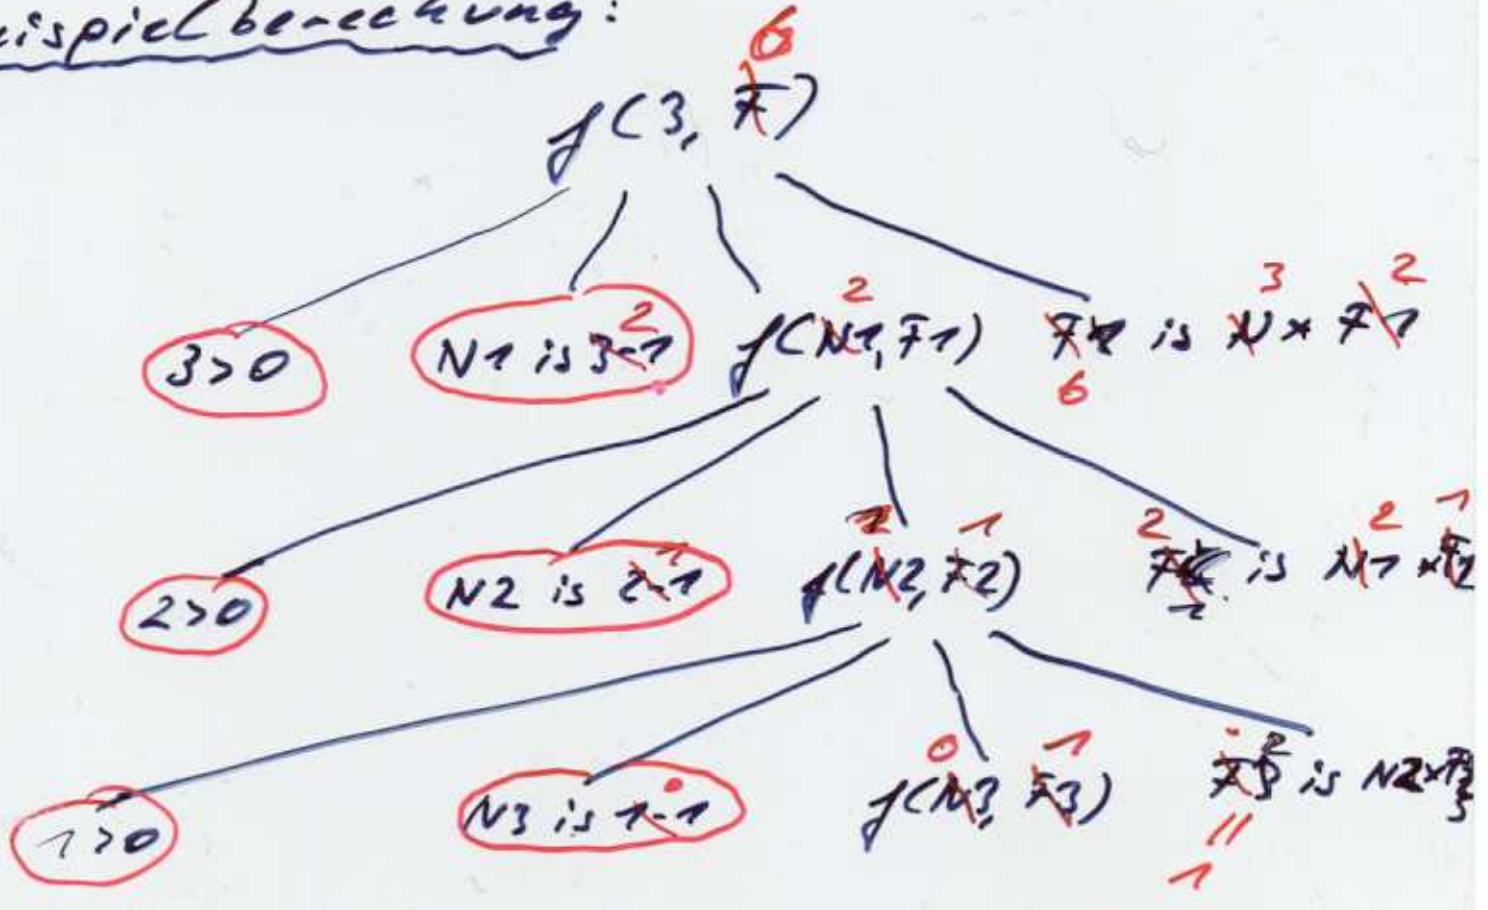 eispielberechung:
6
f(3, F)
3 2
3>0 N1 is 3-1 2 f(N1, F1) 2 F is N * F1
6
2>0 N2 is 2-1 1 f(N2, F2) 1 2 is N1 * F2 2 1
1
1>0 N3 is 1-1 0 f(N3, F3) 0 1 is N2 * F3
1